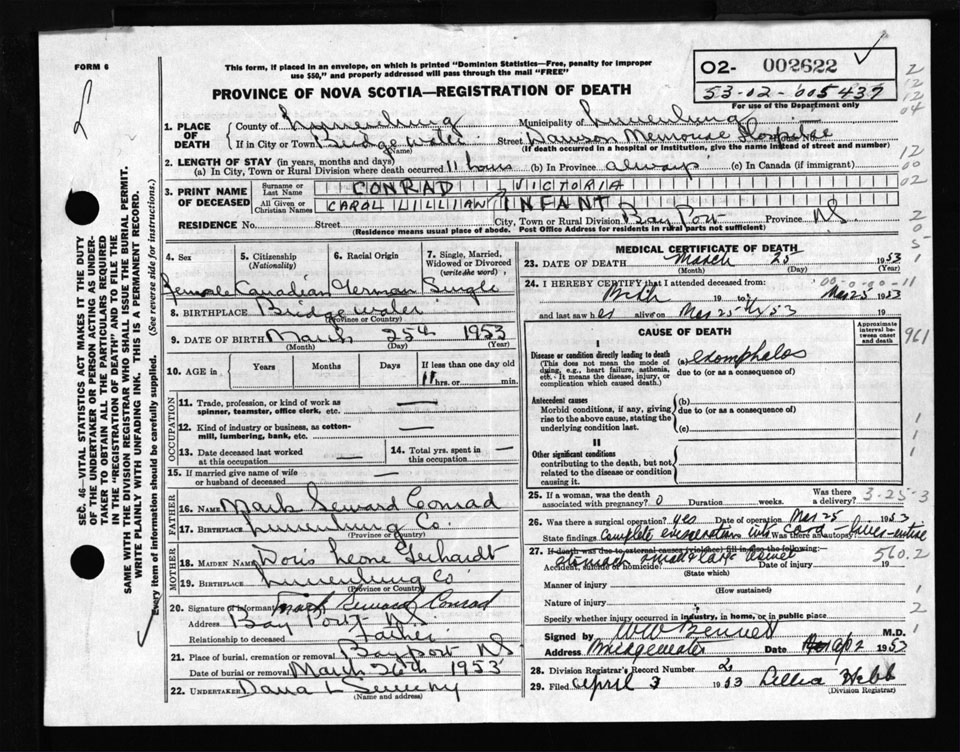 FORM 6
This form, if placed in an envelope, on which is printed "Dominion Statistics—Free, penalty for improper
use $50," and properly addressed will pass through the mail "FREE"
02- 002622
53-02-005437
For use of the Department only
PROVINCE OF NOVA SCOTIA—REGISTRATION OF DEATH
1. PLACE OF DEATH
County of Lunenburg Municipality of Lunenburg
If in City or Town Bridgewater Street Dawson Memorial Hospital House No.
(Name) (If death occurred in a hospital or institution, give the name instead of street and number)
2. LENGTH OF STAY (in years, months and days)
(a) In City, Town or Rural Division where death occurred 11 hours (b) In Province always (c) In Canada (if immigrant)
3. PRINT NAME OF DECEASED
Surname or Last Name CONRAD VICTORIA
All Given or Christian Names CAROL LILLIAN INFANT
RESIDENCE No. Street City, Town or Rural Division Bay Port Province NS
(Residence means usual place of abode. Post Office Address for residents in rural parts not sufficient)
4. Sex
5. Citizenship (Nationality)
6. Racial Origin
7. Single, Married, Widowed or Divorced (write the word)
Female Canadian German Single
8. BIRTHPLACE Bridgewater
(Province or Country)
9. DATE OF BIRTH March 25th 1953
(Month) (Day) (Year)
10. AGE in Years Months Days If less than one day old
11 hrs. or min.
OCCUPATION
11. Trade, profession, or kind of work as
spinner, teamster, office clerk, etc. —
12. Kind of industry or business, as cotton-
mill, lumbering, bank, etc. —
13. Date deceased last worked
at this occupation —
14. Total yrs. spent in
this occupation —
15. If married give name of wife
or husband of deceased —
FATHER
16. NAME Mark Seward Conrad
17. BIRTHPLACE Lunenburg Co.
(Province or Country)
MOTHER
18. MAIDEN NAME Doris Leone Gerhardt
19. BIRTHPLACE Lunenburg Co
(Province or Country)
20. Signature of informant Mark Seward Conrad
Address Bay Port NS
Relationship to deceased Father
21. Place of burial, cremation or removal Bayport NS
Date of burial or removal March 26th 1953
22. UNDERTAKER Dana L Sweeny
(Name and address)
MEDICAL CERTIFICATE OF DEATH
23. DATE OF DEATH March 25 1953
(Month) (Day)
24. I HEREBY CERTIFY that I attended deceased from: 00-0-00-11
Birth 19 to Mar 25 1953
and last saw her alive on Mar 25 1953 19
CAUSE OF DEATH
Approximate interval between onset and death
I
Disease or condition directly leading to death (a) exomphalos
(This does not mean the mode of
dying, e.g., heart failure, asthenia,
etc. It means the disease, injury, or
complication which caused death.)
due to (or as a consequence of)
Antecedent causes
Morbid conditions, if any, giving
rise to the above cause, stating the
underlying condition last.
(b)
due to (or as a consequence of)
(c)
II
Other significant conditions
contributing to the death, but not
related to the disease or condition
causing it.
25. If a woman, was the death
associated with pregnancy? 0 Duration weeks. Was there a delivery? 3-25-3
26. Was there surgical operation? yes Date of operation Mar 25 1953
State findings complete evisceration into cord — liver - entire
Was there an autopsy?
27. If death was due to external causes (violence) fill in the following:
stomach small & large bowel
560.2
Accident, suicide or homicide? Date of injury 19
(State which)
Manner of injury
(How sustained)
Nature of injury
Specify whether injury occurred in industry, in home, or in public place
Signed by W W Bennett M.D.
Address Bridgewater Date Apr 2 1953
28. Division Registrar's Record Number 2
29. Filed April 3 1953 Lillia Hebb
(Division Registrar)
SEC. 46—VITAL STATISTICS ACT MAKES IT THE DUTY
OF THE UNDERTAKER OR PERSON ACTING AS UNDER-
TAKER TO OBTAIN ALL THE PARTICULARS REQUIRED
IN THE "REGISTRATION OF DEATH" AND TO FILE THE
SAME WITH THE DIVISION REGISTRAR WHO SHALL ISSUE THE BURIAL PERMIT.
WRITE PLAINLY WITH UNFADING INK. THIS IS A PERMANENT RECORD.
Every item of information should be carefully supplied. (See reverse side for instructions.)
2
12
12
04
12
00
02
2
0
5
1
961
1
1
1
1
2
1